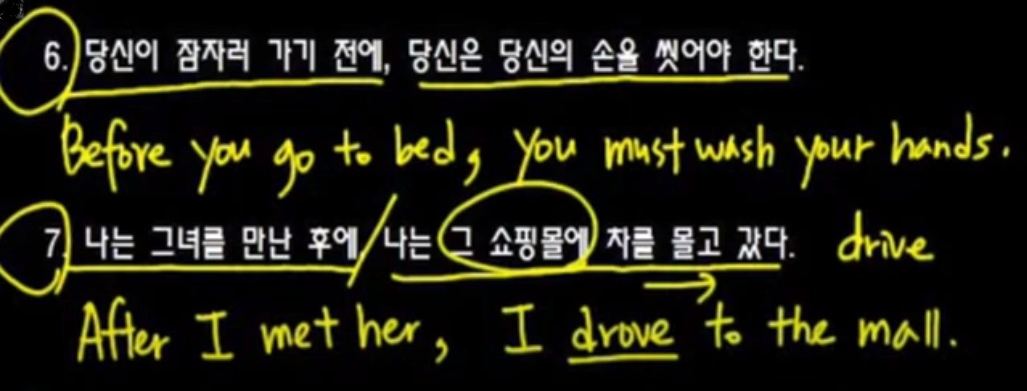 6. 당신이 잠자러 가기 전에, 당신은 당신의 손을 씻어야 한다.
Before you go to bed, you must wash your hands.
7. 나는 그녀를 만난 후에/나는 그 쇼핑몰에 차를 몰고 갔다. drive
After I met her, I drove to the mall.